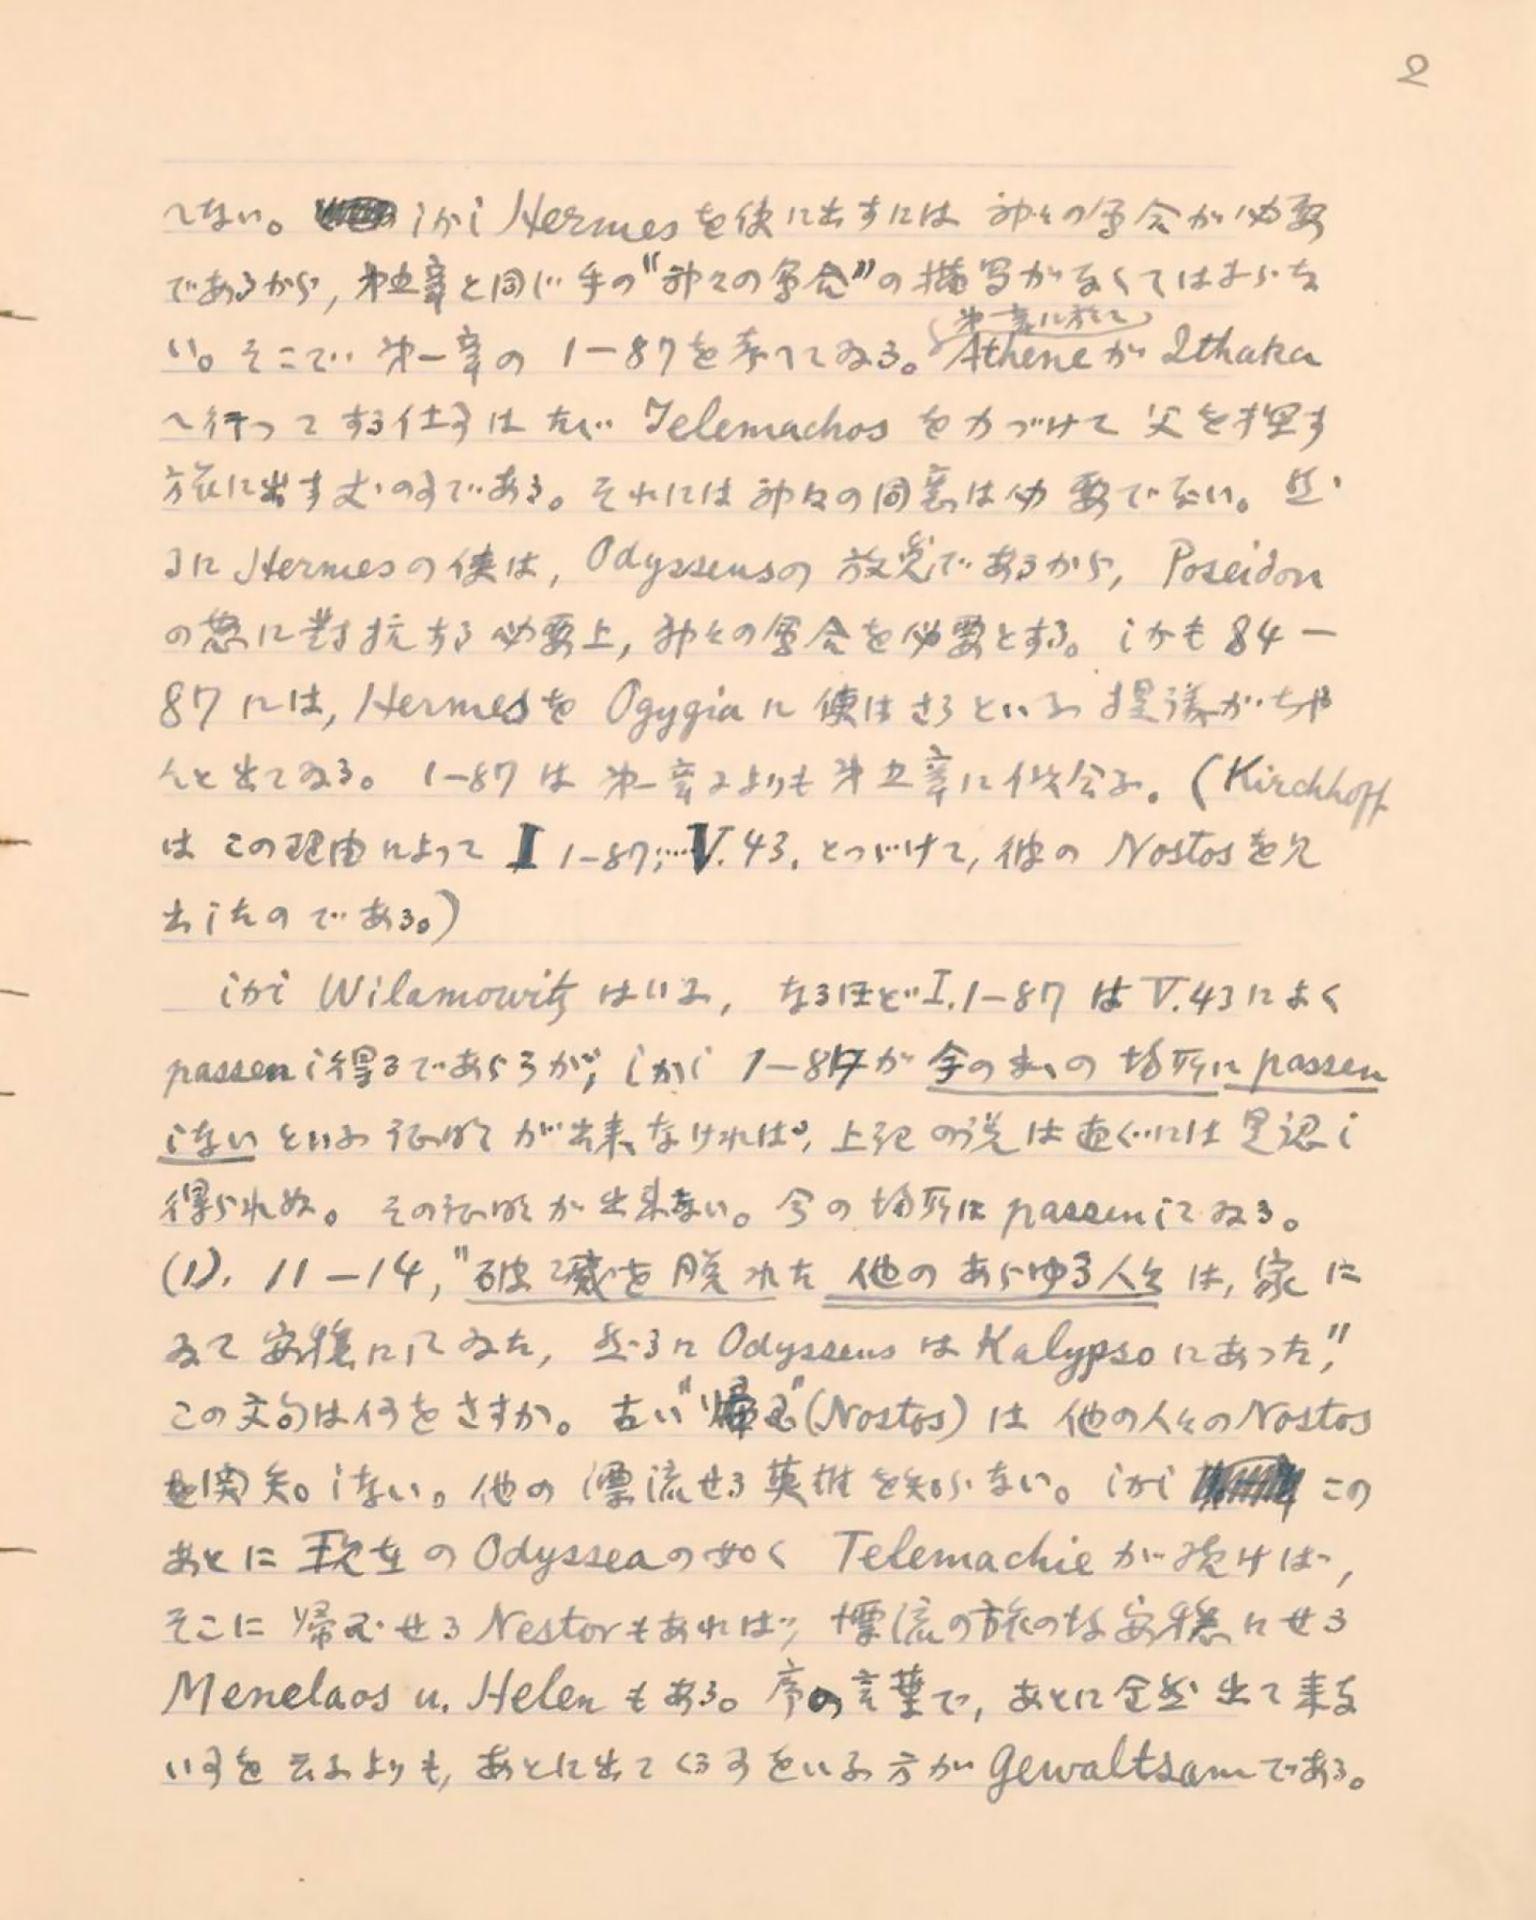 2
へない。しかし Hermes を使に出すには 神々の会合が必要
であるから, 第五章と同じ手の“神々の会合”の描写がなくてはならな
(第一章に於て)
い。そこで 第一章の 1−87を考へてみる。Athene が Ithaka
へ行ってする仕事は たゞ Telemachos を力づけて 父を探す
旅に出す丈の事である。それには神々の同意は必要でない。然
るに Hermesの使は, Odysseusの 放免であるから, Poseidon
の怒に對抗する必要上, 神々の会合を必要とする。しかも 84−
87 には, Hermesを Ogygia に 使はさうといふ 提議がちゃ
んと出てゐる。 1−87 は 第一章によりも 第五章に似合ふ。(Kirchhoff
は この理由によって I 1−87;....V. 43. とつづけて, 彼の Nostosを見
出したのである。)
しかし Wilamowitz はいふ, なるほど I. 1−87 は V. 43 によく
passen し得るであらうが, しかし 1−87が 今のまゝの 場所に passen
しないといふ 証明が出来なければ, 上記の説は直ぐには是認し
得られぬ。 その証明が出来ない。今の場所に passenしてゐる。
(1). 11−14, "破滅を脱れた 他のあらゆる人々は, 家に
ゐて 安穏にしてゐた, 然るに Odysseus は Kalypso にあった,"
この文句は何をさすか。古い"帰国"(Nostos) は 他の人々のNostos
を関知しない。他の漂流せる英雄を知らない。しかし この
あとに 現在の Odysseaの如く Telemachie が続けば,
そこに 帰国せる Nestorもあれば, 漂流の旅のはて安穏にせる
Menelaos u. Helen もある。序の言葉で, あとに全然出て来な
い事を云ふよりも, あとに出てくる事をいふ方が gewaltsam である。